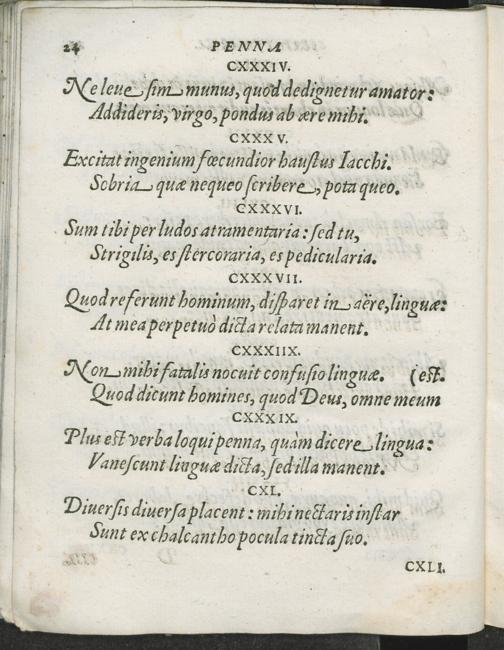 24 PENNA
CXXXIV.
Ne leve sim munus, quod dedignetur amator:
Addideris, virgo, pondus ab ære mihi.
CXXXV.
Excitat ingenium fœcundior haustus Iacchi.
Sobria quæ nequeo scribere, pota queo.
CXXXVI.
Sum tibi per ludos atramentaria: sed tu,
Strigilis, es stercoraria, es pedicularia.
CXXXVII.
Quod referunt hominum, disparet in aëre, linguæ:
At mea perpetuò dicta relata manent.
CXXXIIX.
Non mihi fatalis nocuit confusio linguæ. (est.
Quod dicunt homines, quod Deus, omne meum
CXXXIX.
Plus est verba loqui penna, quàm dicere lingua:
Vanescunt linguæ dicta, sed illa manent.
CXL.
Diversis diversa placent: mihi nectaris instar
Sunt ex chalcantho pocula tincta suo.
CXLI.